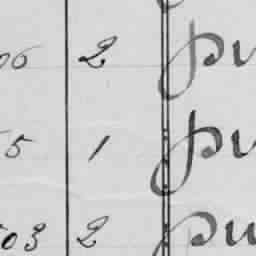 06 2 pu
5 1 pu
03 2 pu